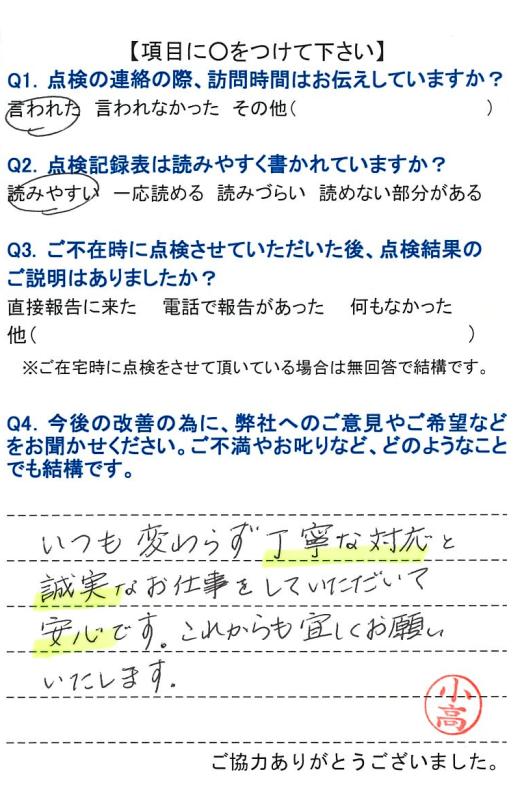 【項目に〇をつけて下さい】
Q1. 点検の連絡の際、訪問時間はお伝えしていますか？
言われた 言われなかった その他（ ）
Q2. 点検記録表は読みやすく書かれていますか？
読みやすい 一応読める 読みづらい 読めない部分がある
Q3. ご不在時に点検させていただいた後、点検結果の
ご説明はありましたか？
直接報告に来た 電話で報告があった 何もなかった
他（ ）
※ご在宅時に点検をさせて頂いている場合は無回答で結構です。
Q4. 今後の改善の為に、弊社へのご意見やご希望など
をお聞かせください。ご不満やお叱りなど、どのようなこと
でも結構です。
いつも変わらず丁寧な対応と
誠実なお仕事をしていただいて
安心です。これからも宜しくお願い
いたします。
小高
ご協力ありがとうございました。